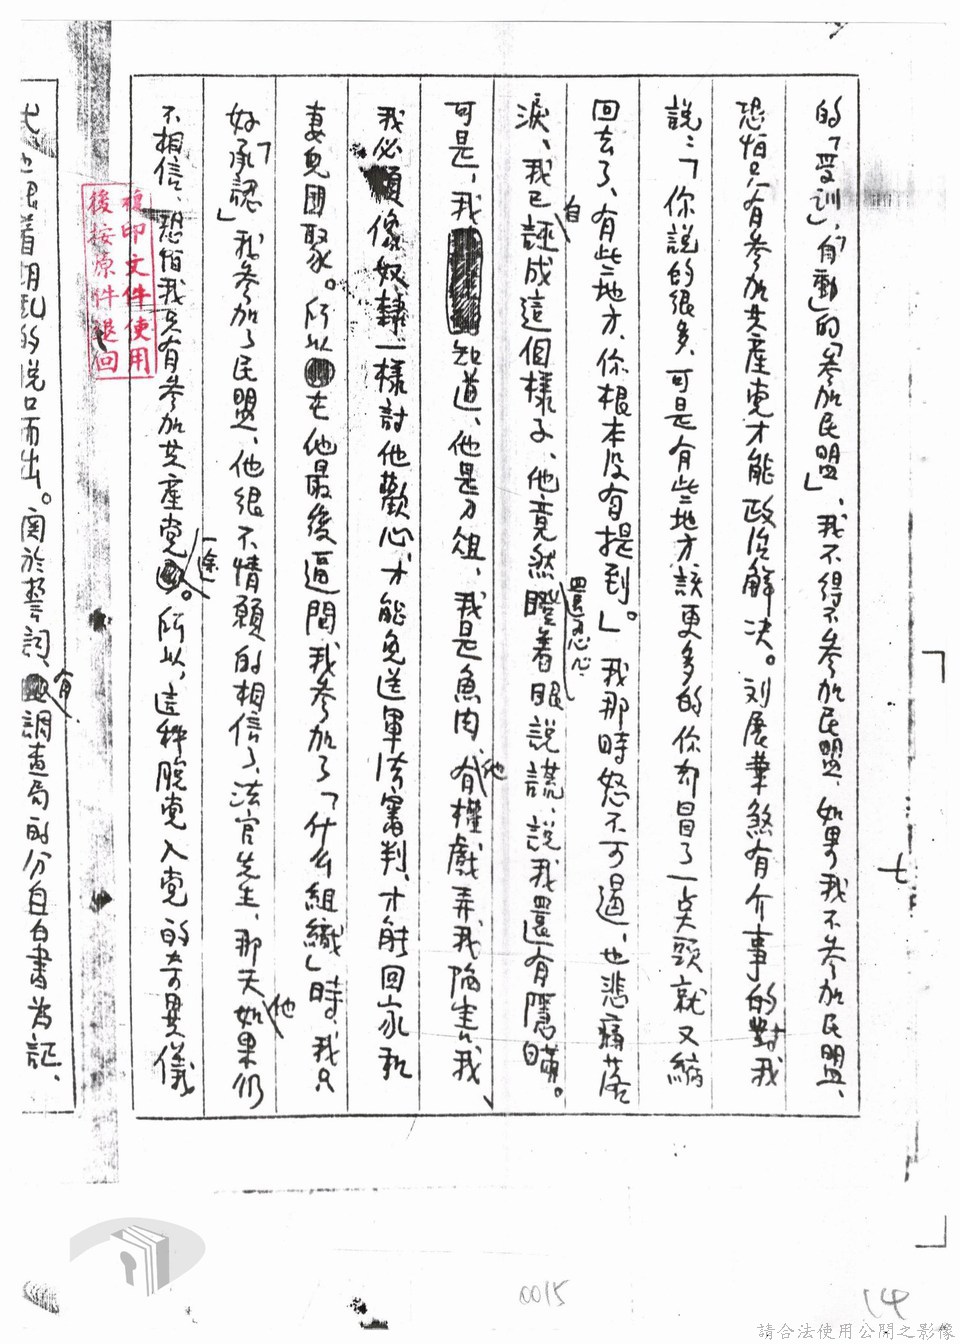 的「受訓」,「自動」的「參加民盟」、我不得不參加民盟、如果我不參加民盟、
恐怕只有參加共產党才能政治解决。刘展華煞有介事的對我
說:「你說的很多、可是有些地方該更多的你却冒了一点頭就又縮
回去了、有些地方、你根本没有提到。」我那時怒不可遏、也悲痛落
淚、我已自誣成這個樣子、他竟然還忍心瞪着眼說謊、說我還有隱瞞。
可是、我知道、他是刀俎、我是魚肉、他有權戲弄我陷害我、
我必須像奴隸一樣討他歡心、才能免送軍法審判、才能回家和
妻兒團聚。所以在他最後逼問我參加了「什么組織」時、我只
好「承認」我參加了民盟、他很不情願的相信了、法官先生、那天他如果仍
不相信、恐怕我只有參加共產党一途。所以、這种脫党入党的奇異儀
式、也跟着胡乱的脫口而出。関於誓詞、有調查局的分自白書為証、
複印文件使用
後按原件退回
七
0015
14
請合法使用公開之影像